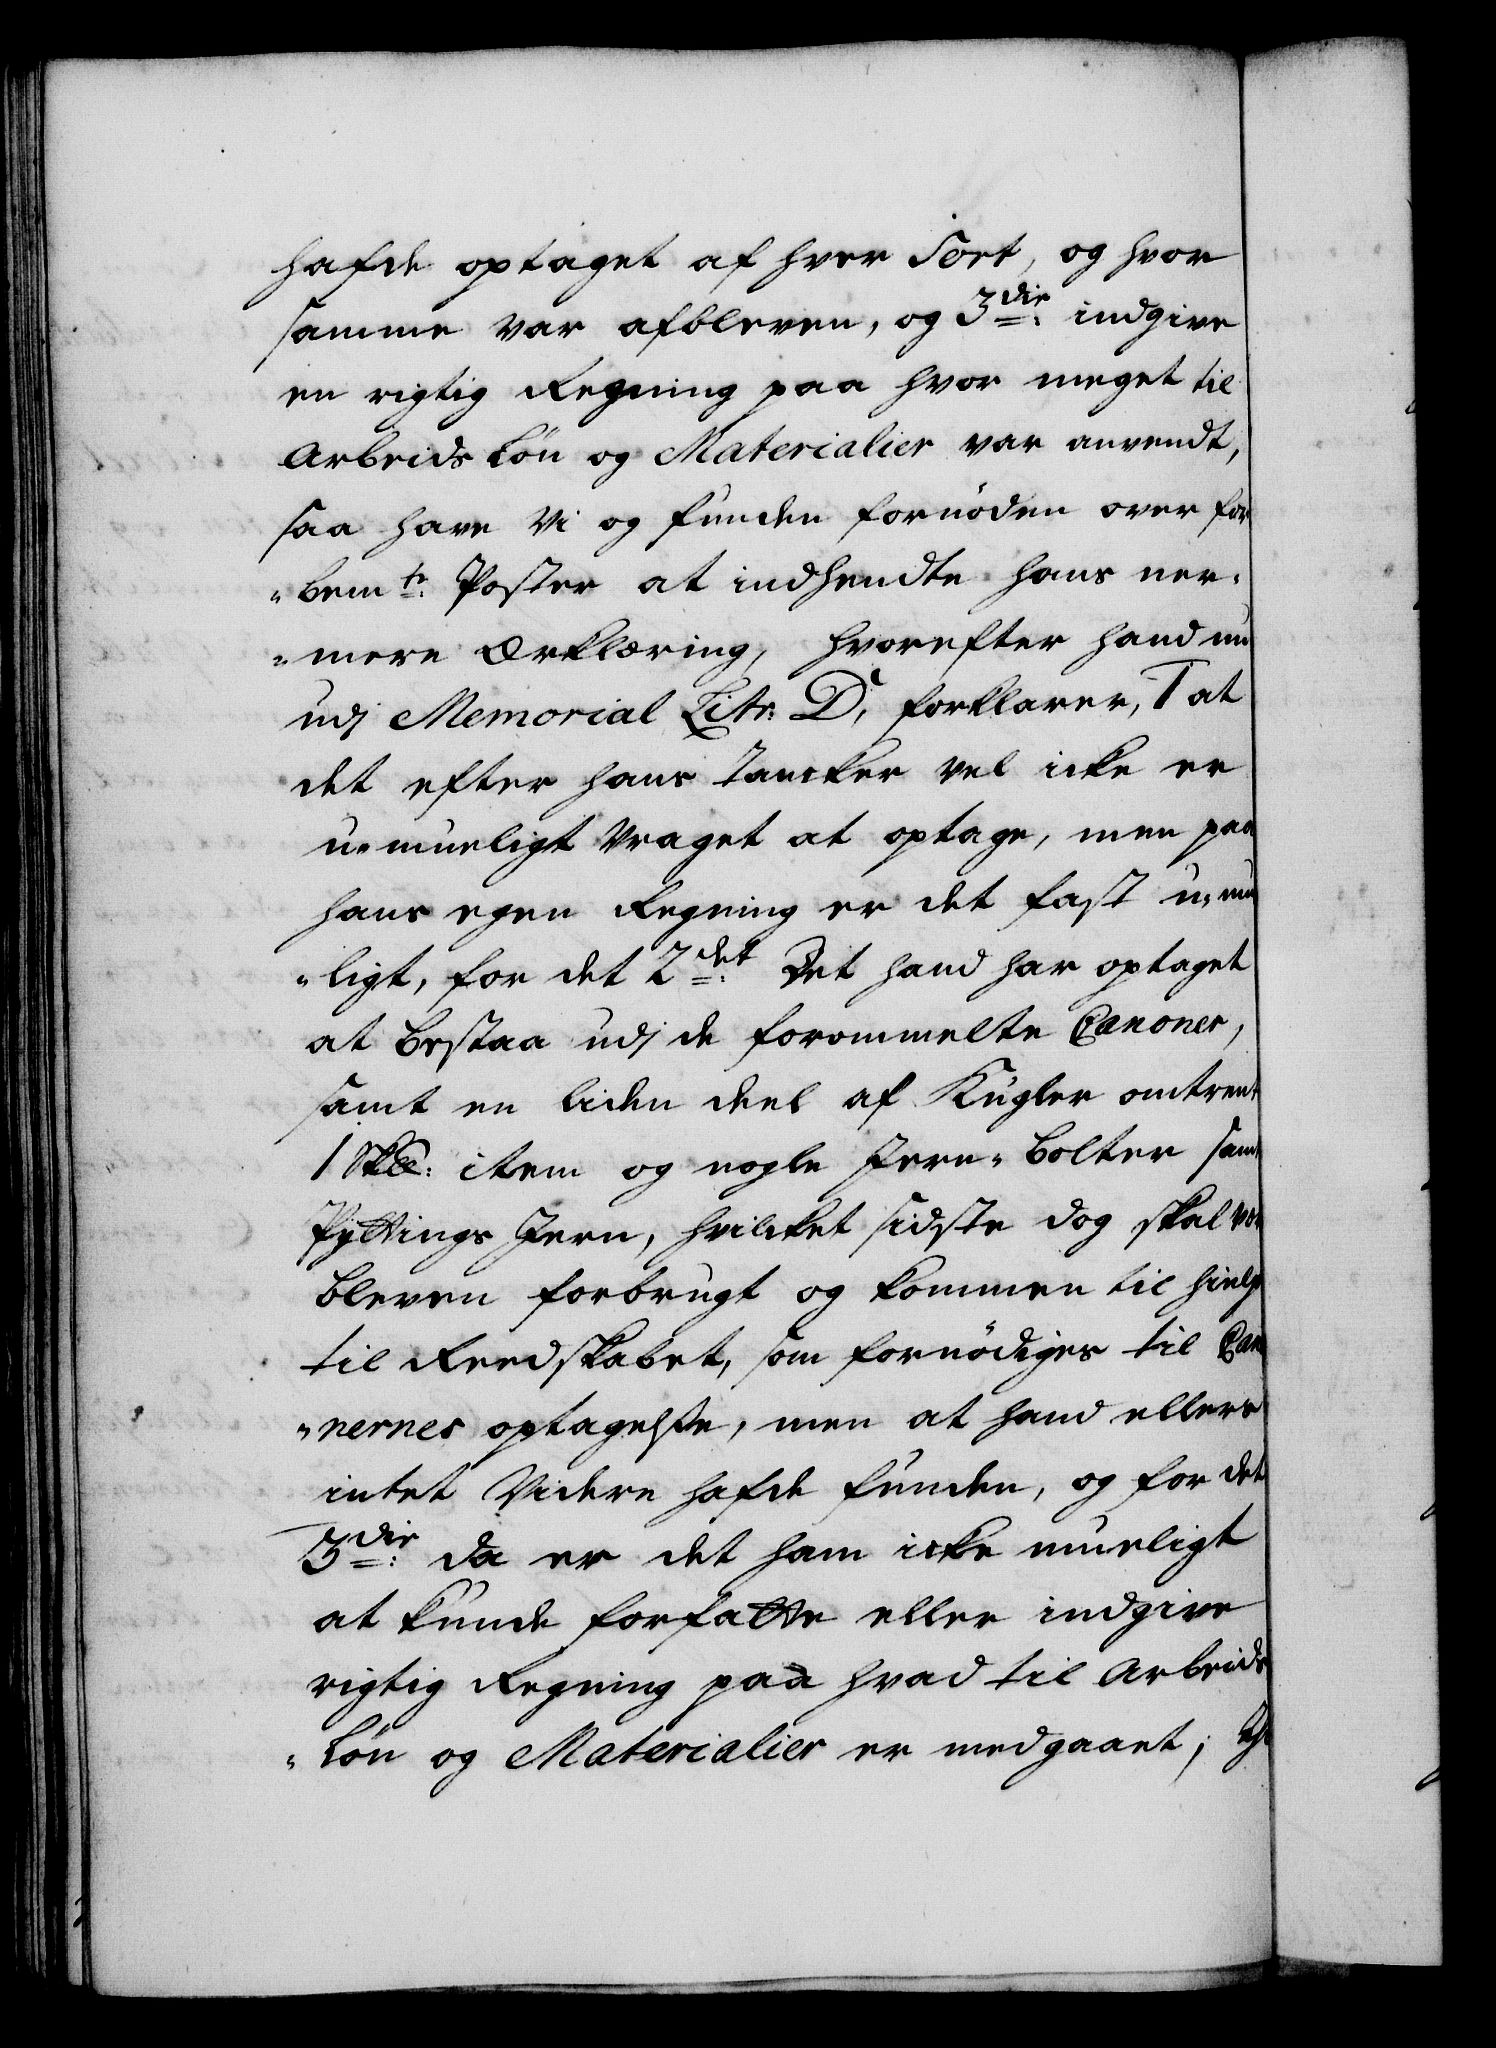 hafde optaget af hver Sort, og hvor
samme var afbleven, og 3die: indgive
en rigtig Regning paa hvor meget til
Arbeids Løn og Materialier var anvendt,
saa have Vi og funden fornøden over for
-bemte: Poster at indhendte hans ner-
-mere Erklæring, hvorefter hand nu
udj Memorial Litr: D, forklarer, 1 at
det efter hans tancker vel icke er
u-mueligt Vraget at optage, men paa
hans egen Regning er det fast u-mu
-ligt, for det 2det: Det hand har optaget
at bestaa udj de forommelte Canoner,
samt en liden deel af Kugler omtrent
1 Sk℔: item og nogle Jern-bolter samt
Pyttings Jern, hvilcket sidste dog skal være
bleven forbrugt og kommen til hielp
til Reedskabet, som fornødiges til Cano
-nernes optagelse, men at hand ellers
intet Videre hafde funden, og for det
3die: da er det ham icke mueligt
at kunde forfatte eller indgive
rigtig Regning paa hvad til Arbeids
-Løn og Materialier er medgaaet; Thi